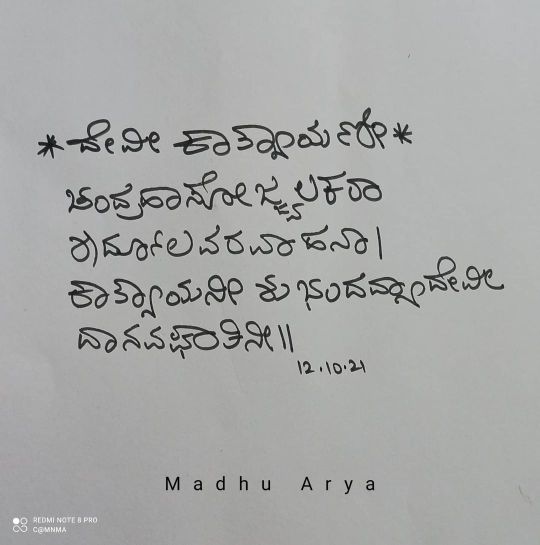 *ದೇವೀ ಕಾತ್ಯಾಯಣೀ*
ಚಂದ್ರಹಾಸೋಜ್ಜ್ವಲಕರಾ
ಶಾರ್ದೂಲವರವಾಹನಾ|
ಕಾತ್ಯಾಯನೀ ಶುಭಂದದ್ಯಾದೇವೀ
ದಾನವಘಾತಿನೀ||
12.10.21
Madhu Arya
REDMI NOTE 8 PRO
C@MNMA